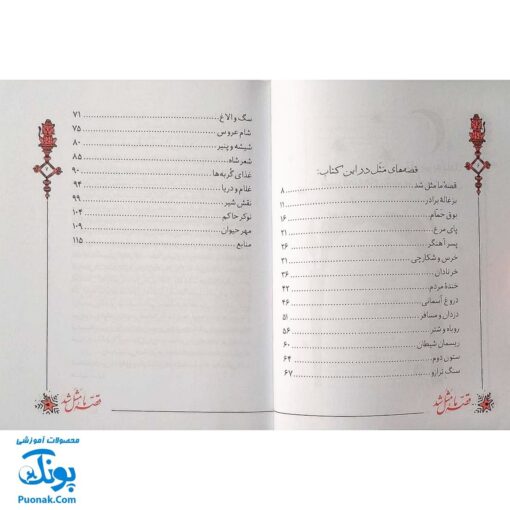 قصه‌های مثل در این کتاب:
قصهٔ ما مثل شد ۸
بزغالهٔ برادر ۱۱
بوق حمام ۱۶
پای مرغ ۲۱
پسر آهنگر ۲۶
خرس و شکارچی ۳۱
خر نادان ۳۶
خندهٔ مردم ۴۲
دروغ آسمانی ۴۶
دزدان و مسافر ۵۱
روباه و شتر ۵۶
ریسمان شیطان ۶۰
ستون دوم ۶۴
سنگ ترازو ۶۷
قصه ما مثل شد
سگ و الاغ ۷۱
شام عروس ۷۵
شیشه و پنیر ۸۰
شعر شاه ۸۵
غذای گربه‌ها ۹۰
غلام و دریا ۹۴
نقش شیر ۹۹
نوکر حاکم ۱۰۴
مهر حیوان ۱۰۹
منابع ۱۱۵
قصه ما مثل شد
محصولات آموزشی
پونک
Puonak.Com